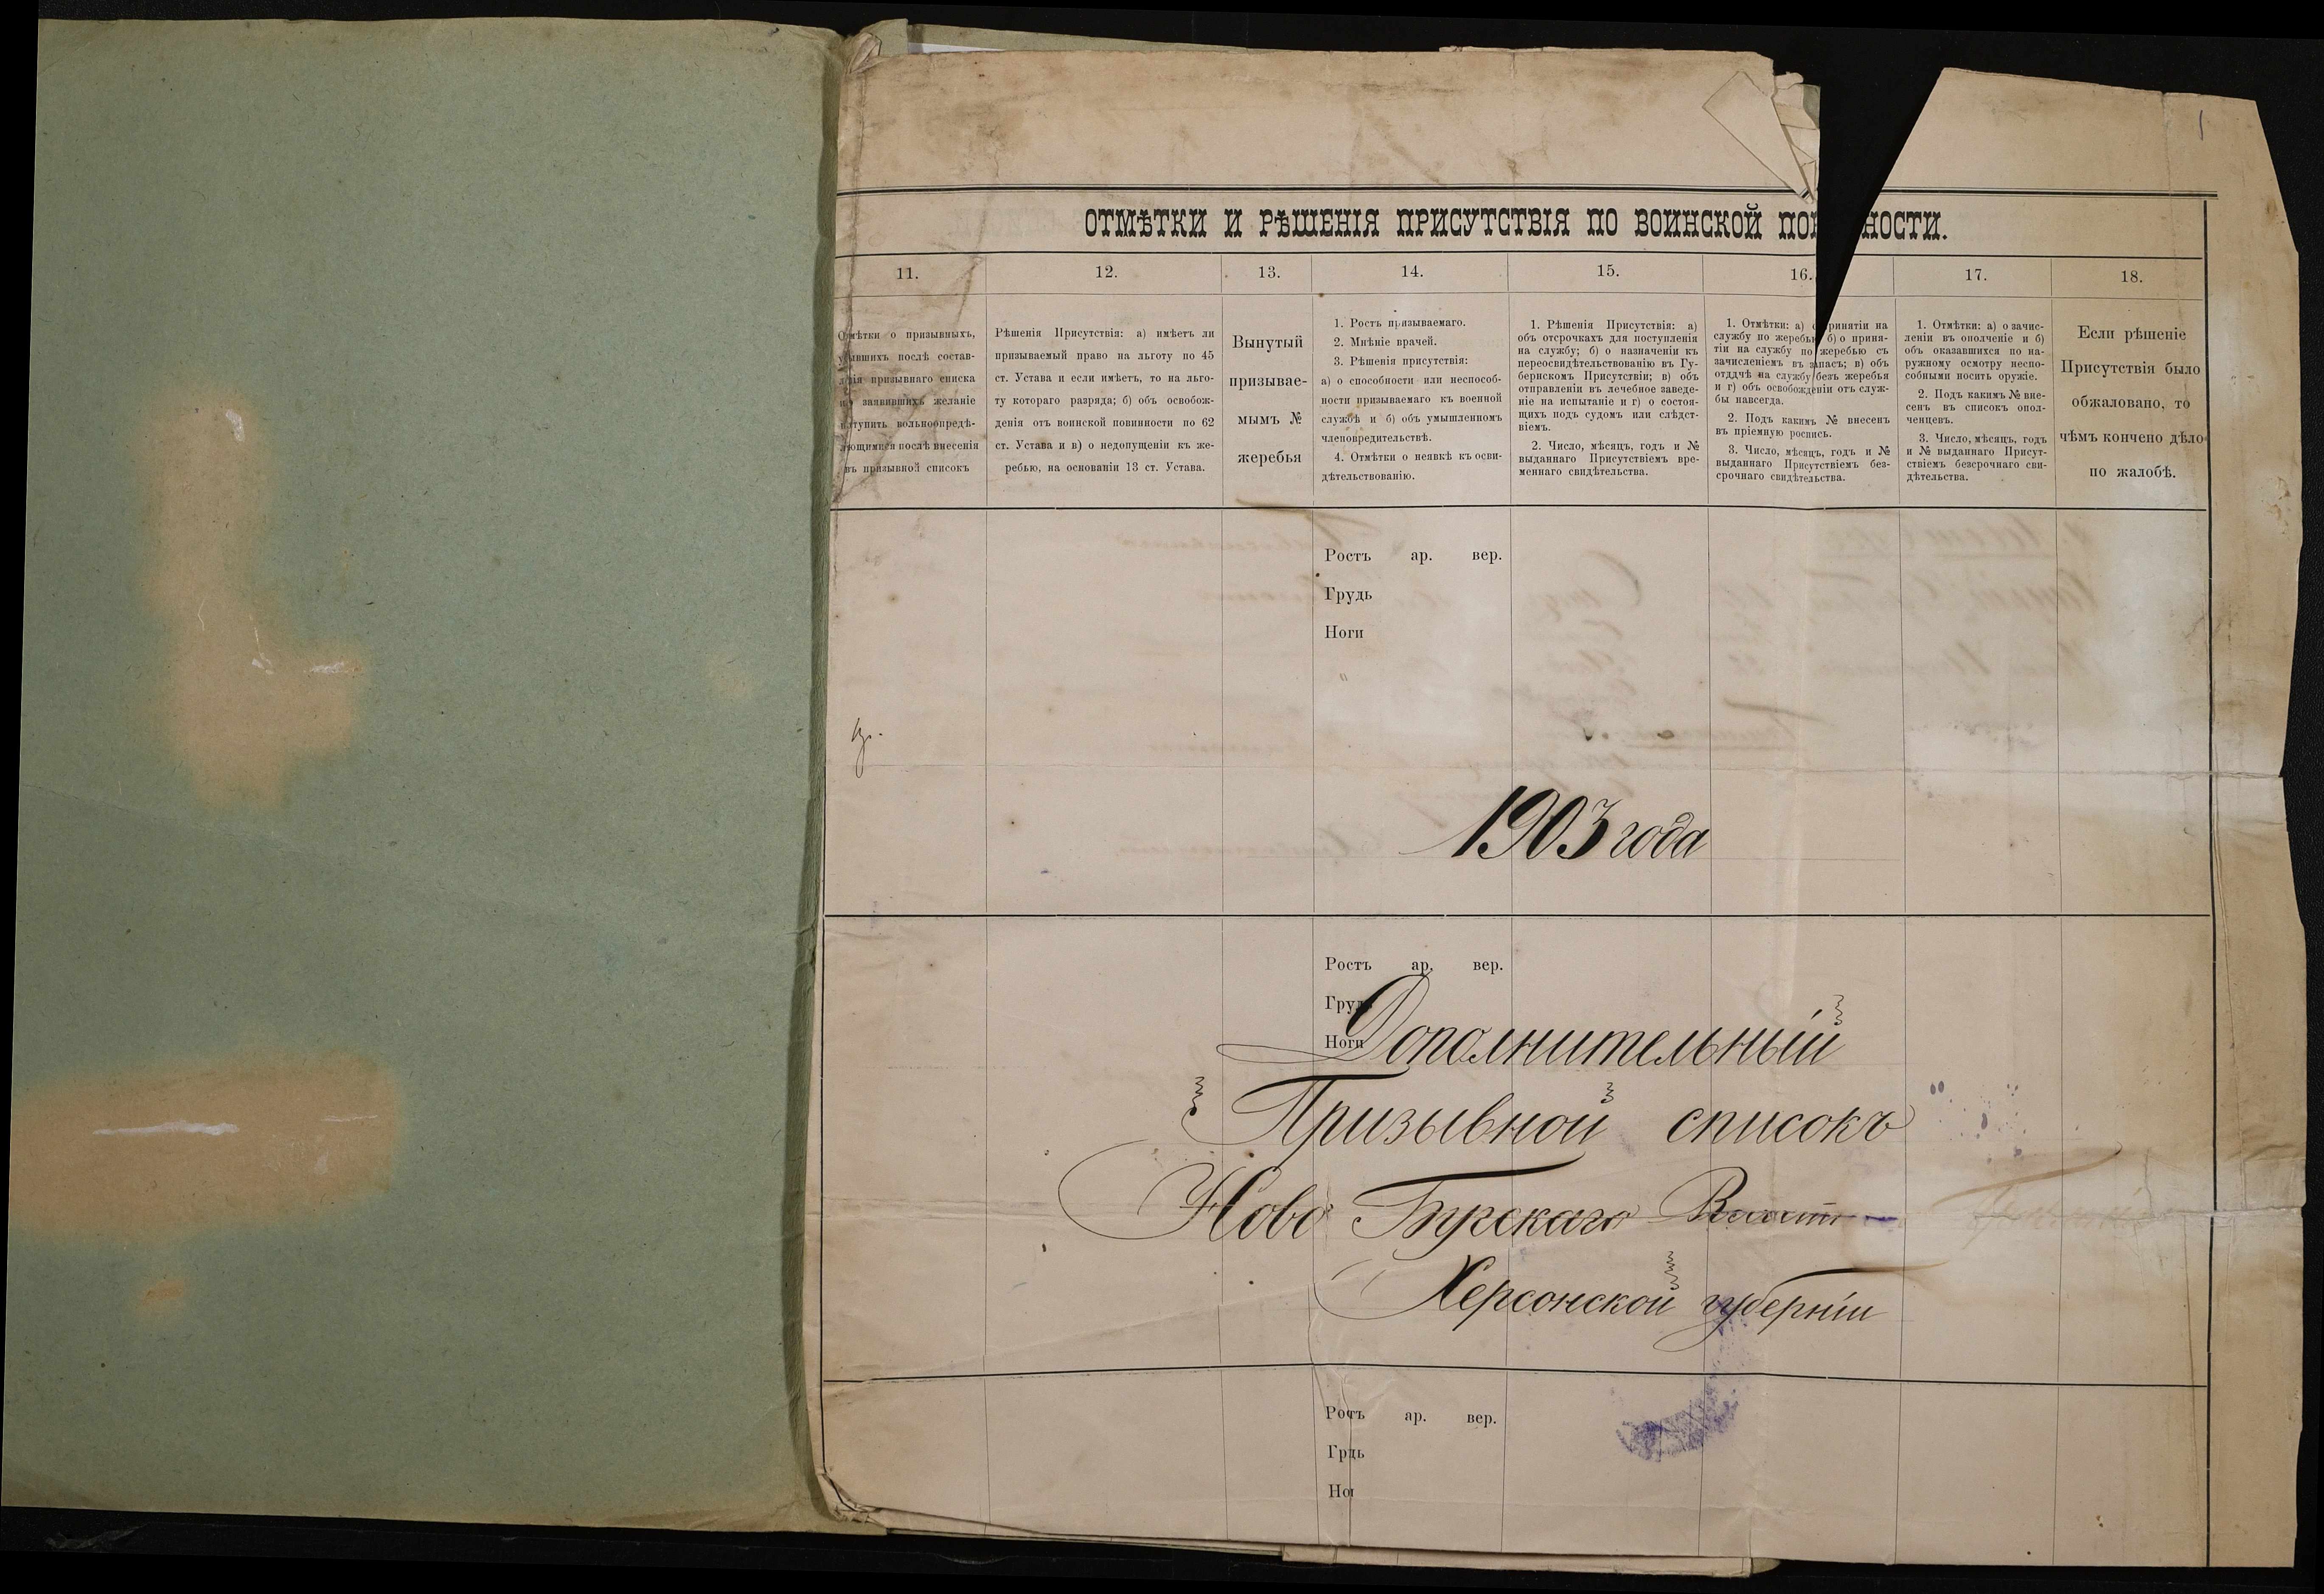 ОТМѢТКИ И РѢШЕНІЯ ПРИСУТСТВІЯ ПО ВОИНСКОЙ ПО НОСТИ.
11. 12. 13. 14. 15. 16. 17. 18.
Отмѣтки о призывныхъ,
убывшихъ послѣ состав-
ленія призывнаго списка
и о заявившихъ желаніе
поступить вольноопредѣ-
ляющимися послѣ внесенія
въ призывной списокъ
Рѣшенія Присутствія: а) имѣетъ ли
призываемый право на льготу по 45
ст. Устава и если имѣетъ, то на льго-
ту котораго разряда; б) объ освобож-
денія отъ воинской повинности по 62
ст. Устава и в) о недопущеніи къ же-
ребью, на основаніи 13 ст. Устава.
Вынутый
призывае-
мымъ №
жеребья
1. Ростъ призываемаго.
2. Мнѣніе врачей.
3. Рѣшенія присутствія:
а) о способности или неспособ-
ности призываемаго къ военной
службѣ и б) объ умышленномъ
членовредительствѣ.
4. Отмѣтки о неявкѣ къ осви-
дѣтельствованію.
1. Рѣшенія Присутствія: а)
объ отсрочкахъ для поступленія
на службу; б) о назначеніи къ
переосвидѣтельствованію въ Гу-
бернскомъ Присутствіи; в) объ
отправленіи въ лечебное заведе-
ніе на испытаніе и г) о состоя-
щихъ подъ судомъ или слѣдст-
віемъ.
2. Число, мѣсяцъ, годъ и №
выданнаго Присутствіемъ вре-
меннаго свидѣтельства.
1. Отмѣтки: а) о принятіи на
службу по жеребью б) о приня-
тіи на службу по жеребью съ
зачисленіемъ въ запасъ; в) объ
отдачѣ на службу безъ жеребья
и г) объ освобожденіи отъ служ-
бы навсегда.
2. Подъ какимъ № внесенъ
въ пріемную роспись.
3. Число, мѣсяцъ, годъ и №
выданнаго Присутствіемъ без-
срочнаго свидѣтельства.
1. Отмѣтки: а) о зачис-
леніи въ ополченіе и б)
объ оказавшихся по на-
ружному осмотру неспо-
собными носить оружіе.
2. Подъ какимъ № вне-
сенъ въ списокъ опол-
ченцевъ.
3. Число, мѣсяцъ, годъ
и № выданнаго Присут-
ствіемъ безсрочнаго сви-
дѣтельства.
Если рѣшеніе
Присутствія было
обжаловано, то
чѣмъ кончено дѣло
по жалобѣ.
Ростъ ар. вер.
Грудь
Ноги
"
1903 года
Ростъ ар. вер.
Грудь
Ноги
Дополнительный
Призывной списокъ
Ново Бугскаго
Херсонской губерніи
Ростъ ар. вер.
Грдь
Но